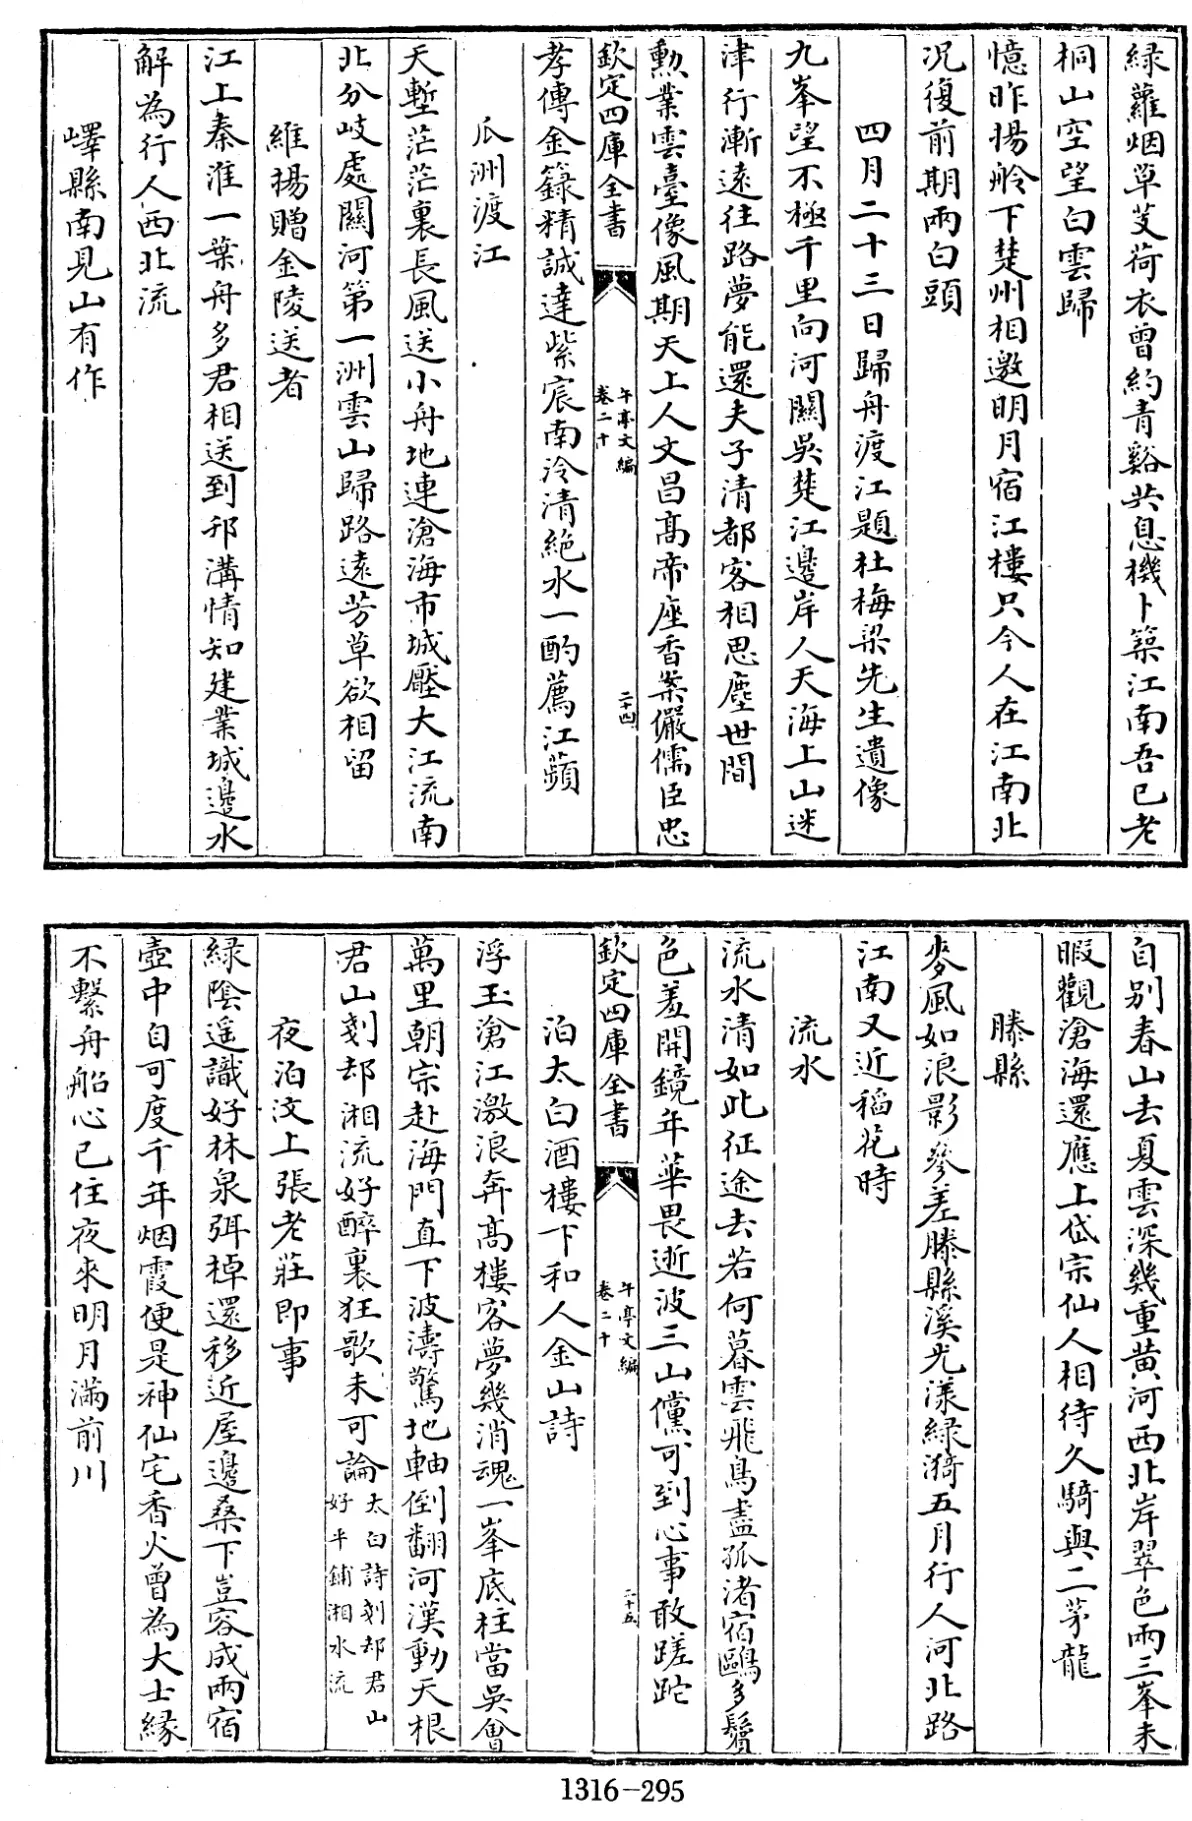 緑蘿烟草芰荷衣曾約青谿共息機卜築江南吾已老
桐山空望白雲歸
憶昨揚舲下楚州相邀明月宿江樓只今人在江南北
况復前期兩白頭
四月二十三日歸舟渡江題杜梅梁先生遺像
九峯望不極千里向河關吳楚江邊岸人天海上山迷
津行漸遠往路夢能還夫子清都客相思塵世間
勲業雲臺像風期天上人文昌髙帝座香案儼儒臣忠
欽定四庫全書
午亭文編
卷二十
二十四
孝傳金籙精誠達紫宸南泠清絶水一酌薦江蘋
瓜洲渡江
天塹茫茫裏長風送小舟地連滄海市城壓大江流南
北分岐處關河第一洲雲山歸路遠芳草欲相留
維揚贈金陵送者
江上秦淮一葉舟多君相送到邗溝情知建業城邉水
解為行人西北流
嶧縣南見山有作
自别春山去夏雲深幾重黄河西北岸翠色兩三峯未
暇觀滄海還應上岱宗仙人相待久騎與二茅龍
滕縣
麥風如浪影參差滕縣溪光漾緑漪五月行人河北路
江南又近稻花時
流水
流水清如此征途去若何暮雲飛鳥盡孤渚宿鷗多鬢
色羞開鏡年華畏逝波三山儻可到心事敢蹉跎
欽定四庫全書
午亭文編
卷二十
二十五
泊太白酒樓下和人金山詩
浮玉滄江激浪奔髙樓客夢幾消魂一峯底柱當吳會
萬里朝宗赴海門直下波濤驚地軸倒翻河漢動天根
君山剗却湘流好醉裏狂歌未可論太白詩剗却君山
好平鋪湘水流
夜泊汶上張老莊即事
緑陰遥識好林泉弭棹還移近屋邉桑下豈容成兩宿
壺中自可度千年烟霞便是神仙宅香火曾為大士縁
不繫舟船心已住夜來明月滿前川
1316-295